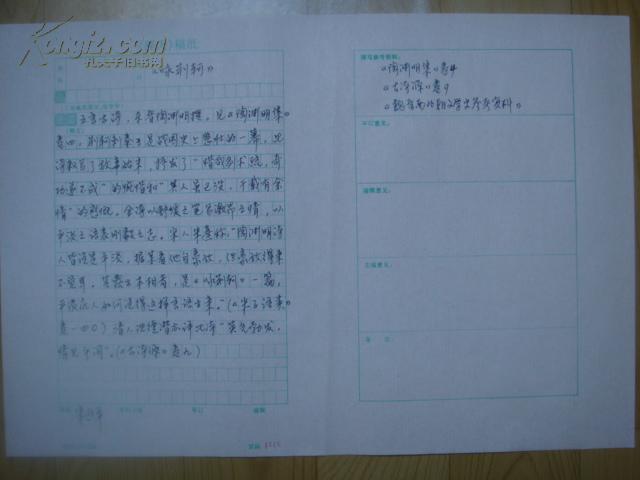 Kongfz.com
孔夫子旧书网
稿纸
《咏荆轲》
五言古诗，东晋陶渊明撰，见《陶渊明集》
卷四，荆轲刺秦王是战国史上悲壮的一幕，此
诗叙写了故事始末，抒发了“惜哉剑术疏，奇
功遂不成”的惋惜和“其人虽已没，千载有余
情”的感慨。全诗以舒缓之笔写激昂之情，以
平淡之语表刚毅之志。宋人朱熹称：“陶渊明诗
人皆说是平淡，据某看他自豪放，但豪放得来
不觉耳，其露出本相者，是《咏荆轲》一篇，
平淡底人如何说得这样言语出来。”（《朱子语类》
卷一四〇）清人沈德潜亦评此诗“英气勃发，
情见乎词”。（《古诗源》卷九）
审订
编辑
撰写参考资料：
《陶渊明集》卷4
《古诗源》卷9
《魏晋南北朝文学史参考资料》
审订意见：
编辑意见：
主编意见：
备注：